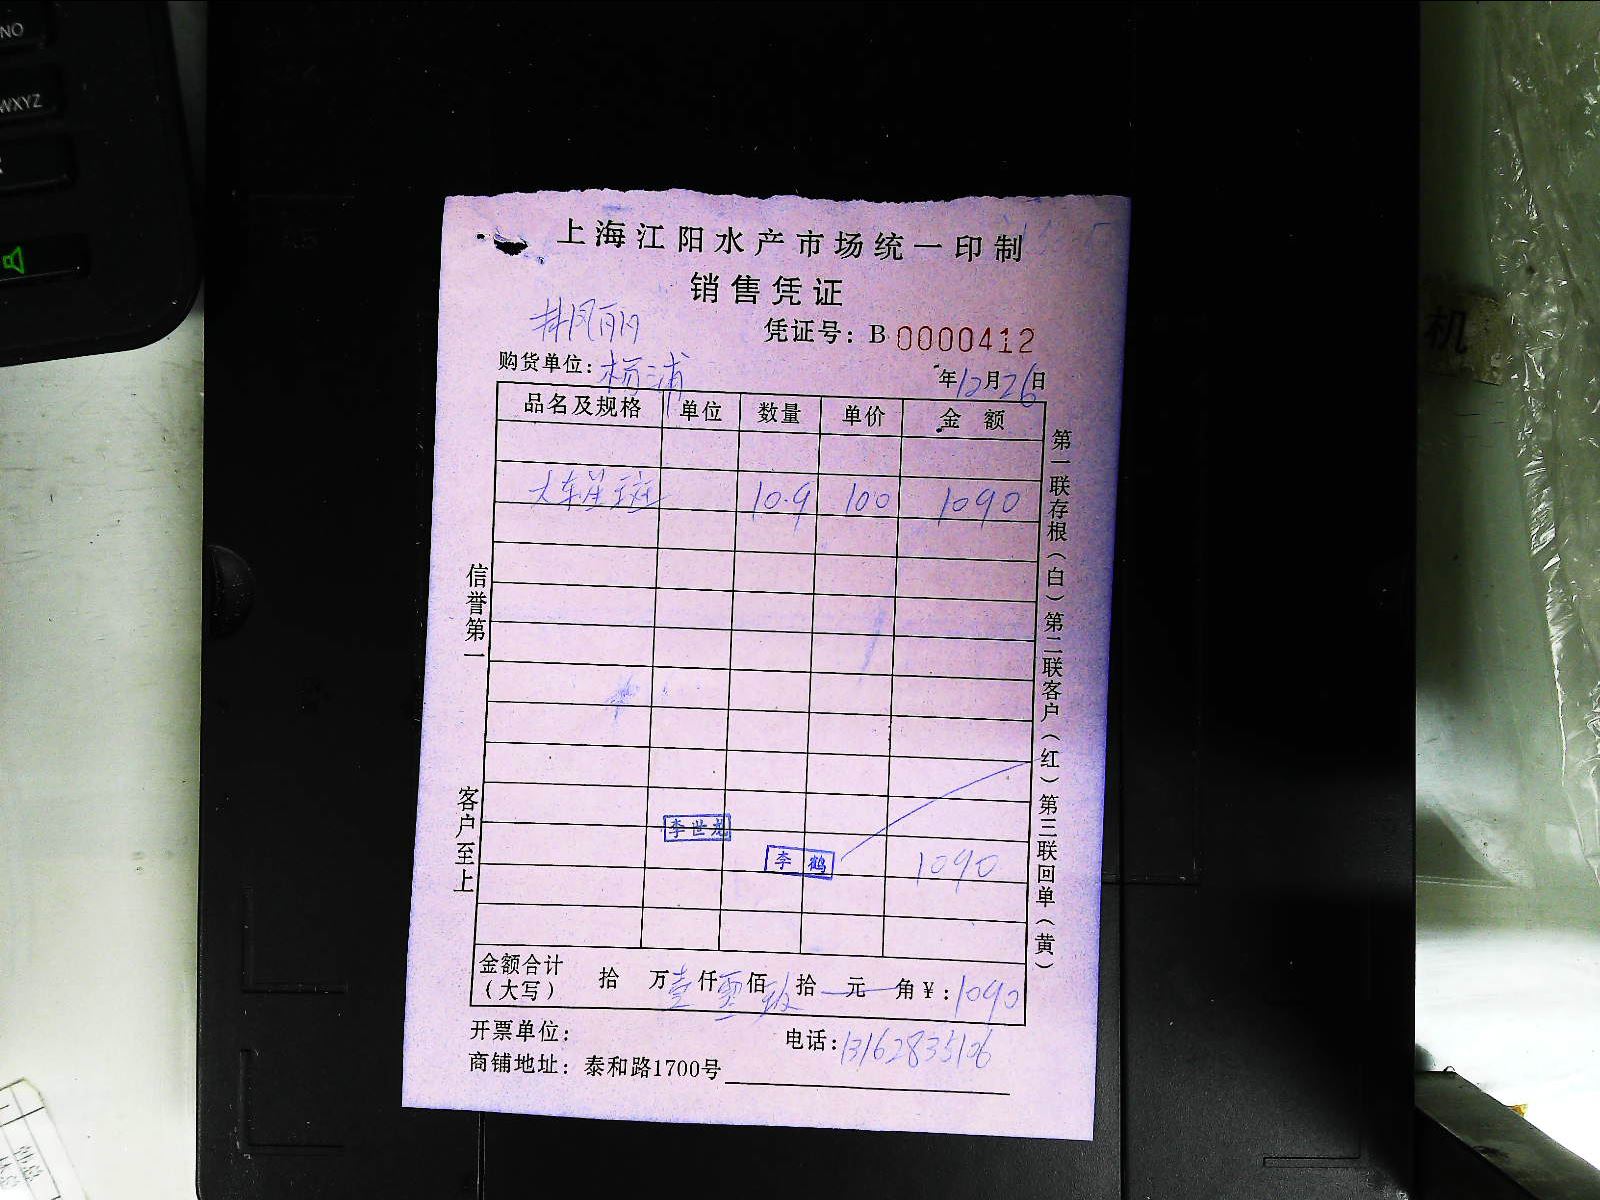 上海江阳水产市场统一印制
销售凭证
井凤丽
凭证号：B 0000412
购货单位：杨浦
年12月26日
品名及规格 单位 数量 单价 金额
大东星斑 10.9 100 1090
李世龙
李鹤
1090
金额合计（大写） 拾 万壹仟零佰玖拾元角￥：1090
开票单位：
电话：13162835106
商铺地址：泰和路1700号
信誉第一
客户至上
第一联存根（白）第二联客户（红）第三联回单（黄）
WXYZ
机